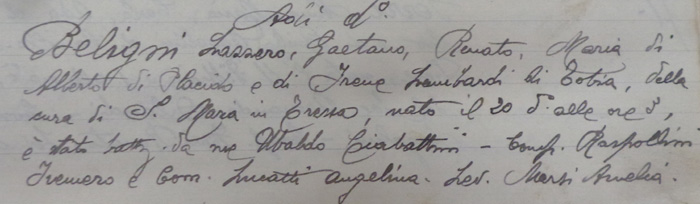 Adì do.
Beligni Lazzero, Gaetano, Renato, Maria di
Alberto di Placido e di Irene Lombardi di Tobia, della
cura di S. Maria in Gressa, nato il 20 do alle ore 3,
è stato battz. da me Ubaldo Ciabattini - Comp. Raspollini
e Com. Lucatti Angelina. Lev. Marsi Amelia.